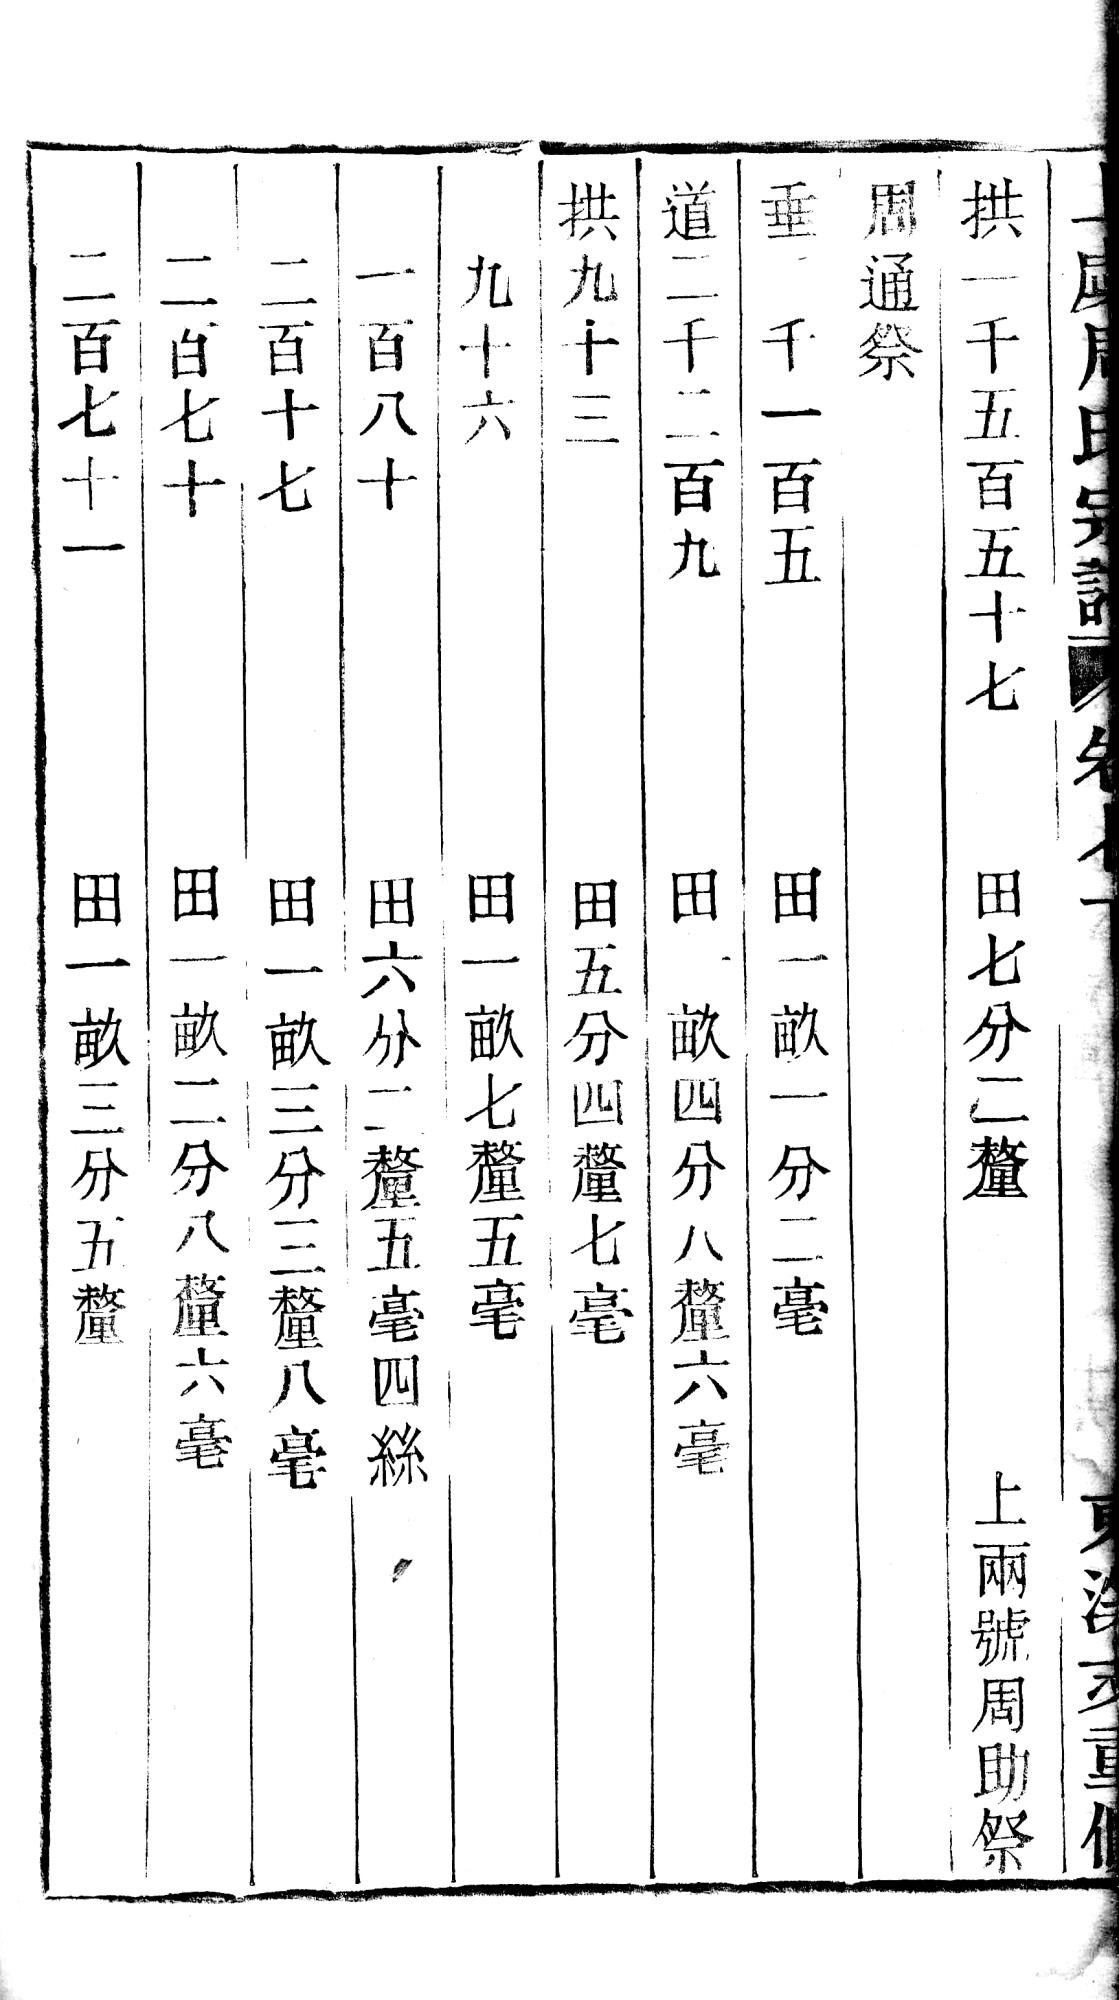 周氏宗譜 卷
重修
拱一千五百五十七 田七分二釐 上兩號周助祭
周通祭
垂一千一百五 田一畝一分二毫
道二千二百九 田一畝四分八釐六毫
拱九十三 田五分四釐七毫
九十六 田一畝七釐五毫
一百八十 田六分二釐五毫四絲
二百十七 田一畝三分三釐八毫
二百七十 田一畝二分八釐六毫
二百七十一 田一畝三分五釐